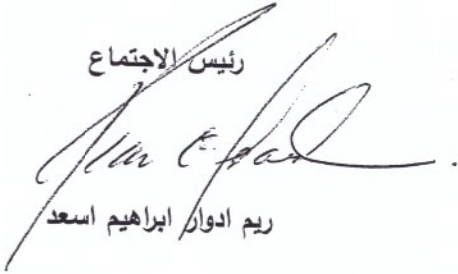 رئيس الاجتماع
ريم ادوار ابراهيم اسعد